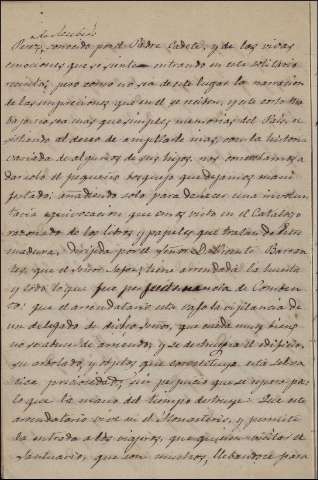 Perez, conocido por el Padre Cadete, y de las vivas
emociones que se sienten entrando en este solitario
recinto; pero como no sea de este lugar la narracion
de las impresiones que en el se reciben, y este corto tra
bajo no sea más que simples memorias del Pais, re
sistiendo al deseo de ampliarle mas, con la historia
variada de algunos de sus hijos, nos concretamos a
darselo el pequeño bosquejo que dejamos mani
festado: añadiendo solo para deshacer una involun
taria equivocacion que emos visto en el Catalogo
razonado de los libros y papeles que tratan de Estre
madura, dirigida por el Señor D. Vicente Barran
tes, que el Señor tiene arrendada la huerta
y todo lo que fue pertenencia de Conven
to: que el arrendatario esta bajo la vigilancia de
un delegado de dicho Señor, que cuida muy bien
no se arriende, y se destruya el edificio,
su arbolado, y objetos, que constituyen esta
preciosidad, sin perjuicio que se repare
lo que la mano del tiempo destruye: Que este
arrendatario vive en el Monasterio, y permite
la entrada a los viageros, que quieren visitar el
Santuario, que son muchos, llebandose para